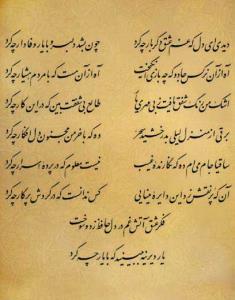 دیدی ای دل که غم عشق دگر بار چه کرد چون بشد دلبر و با یار وفادار چه کرد
آه از آن نرگس جادو که چه بازی انگیخت آه از آن مست که با مردم هشیار چه کرد
اشک من رنگ شفق یافت ز بی مهری یار طالع بی شفقت بین که در این کار چه کرد
برقی از منزل لیلی بدرخشید سحر وه که با خرمن مجنون دل افگار چه کرد
ساقیا جام می ام ده که نگارنده غیب نیست معلوم که در پرده اسرار چه کرد
آن که پرنقش زد این دایره مینایی کس ندانست که در گردش پرگار چه کرد
فکر عشق آتش غم در دل حافظ زد و سوخت
یار دیرینه ببینید که با یار چه کرد